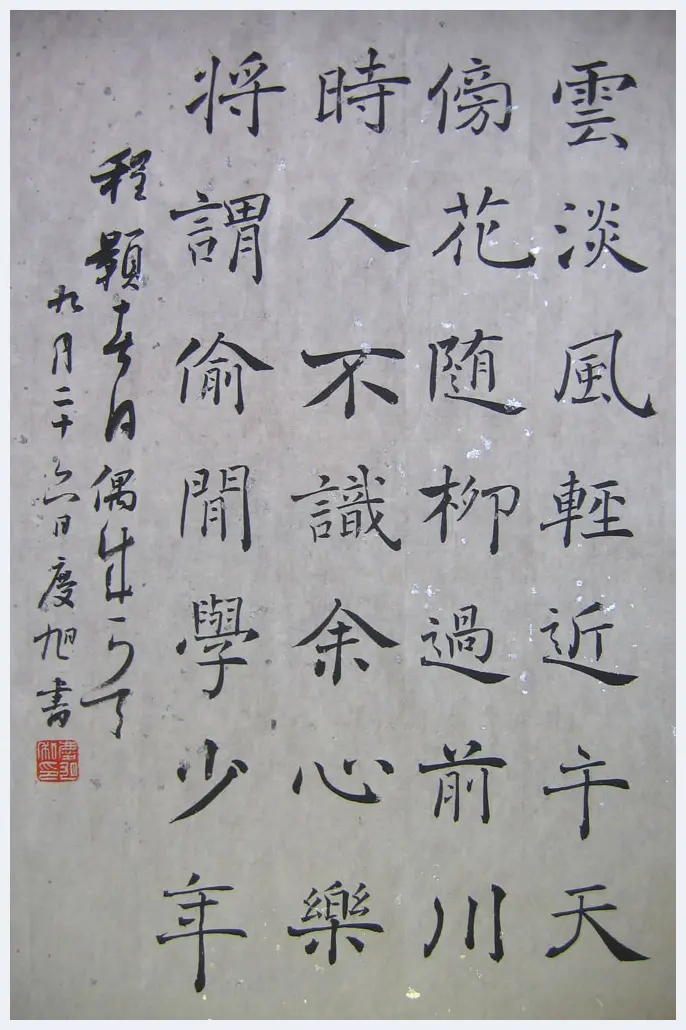 雲淡風輕近午天
傍花随柳過前川
時人不識余心樂
将謂偷閒學少年
程顥春日偶成
九月二十六日慶旭書